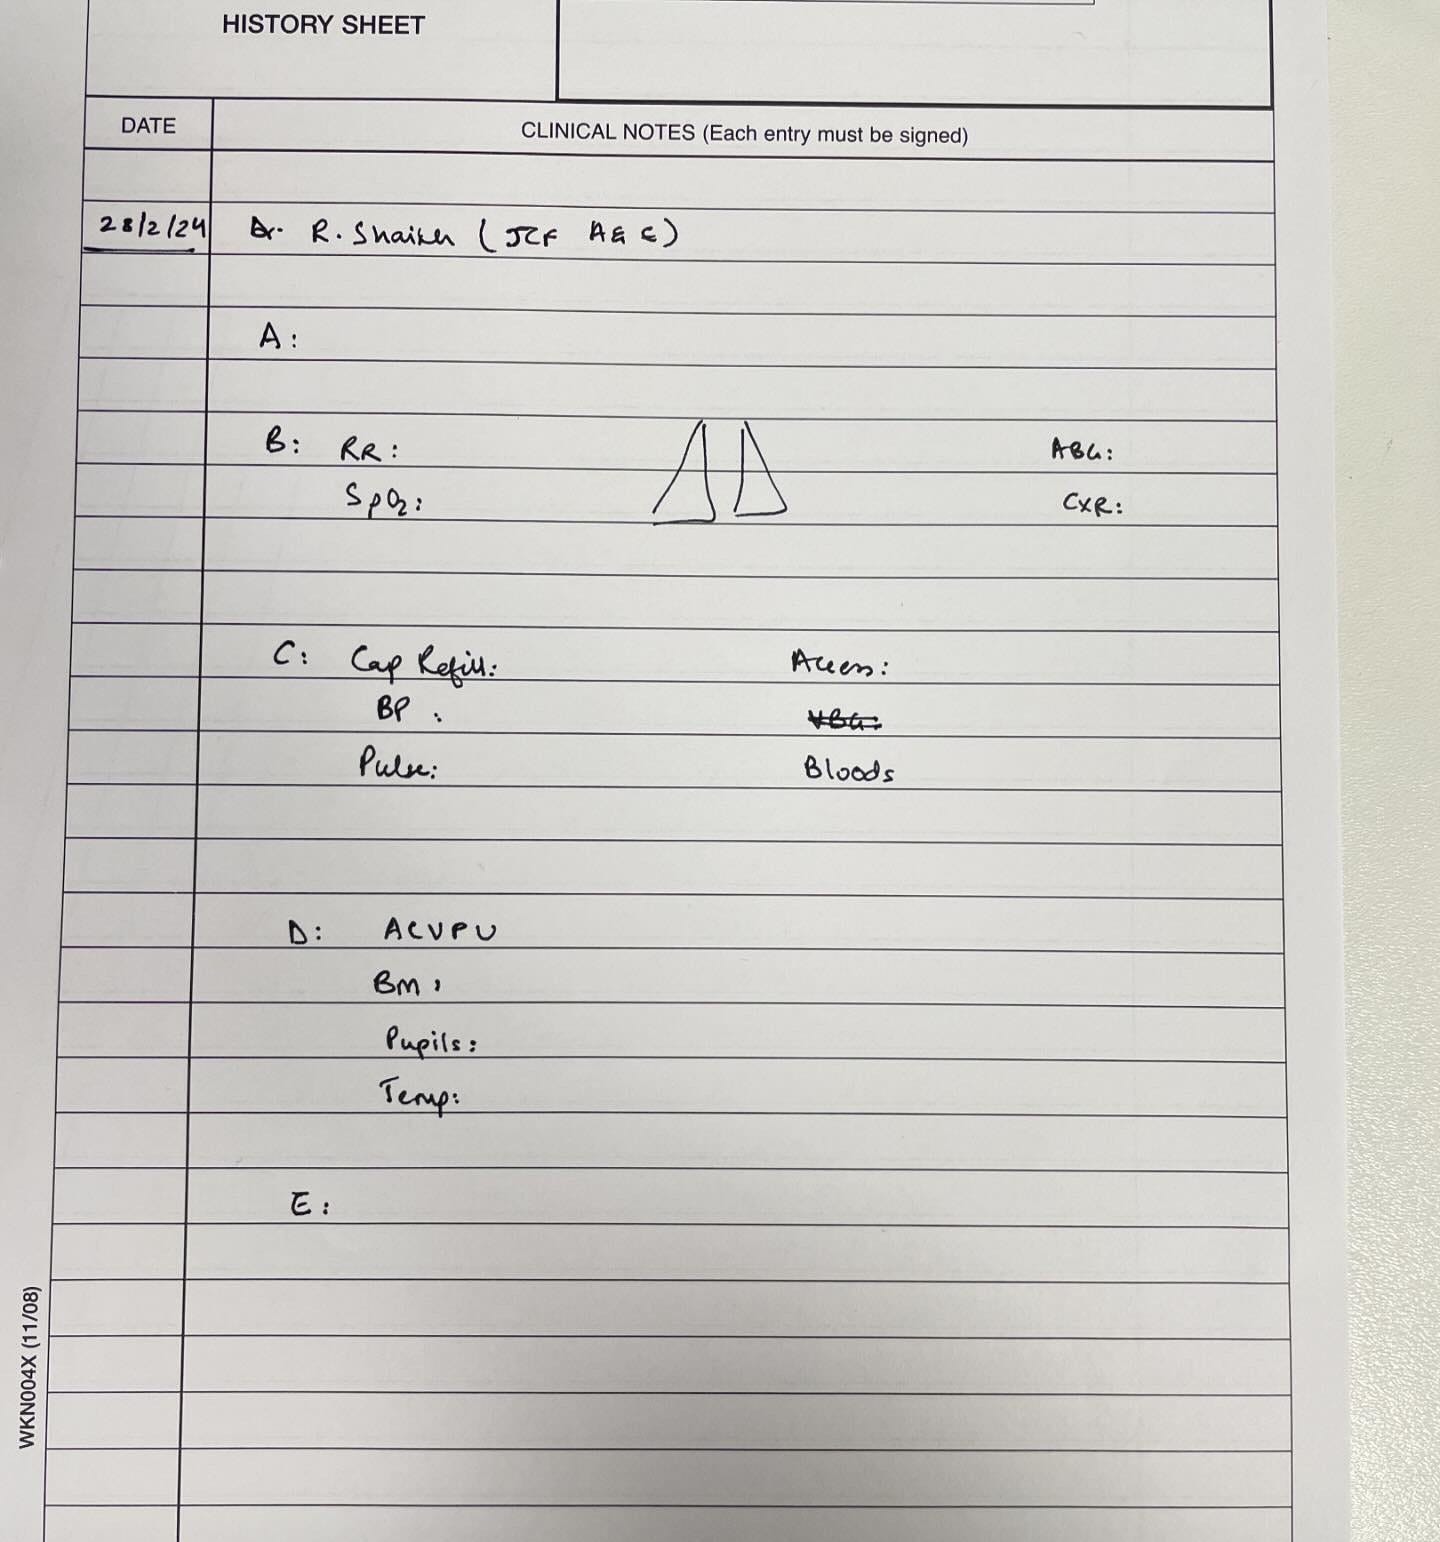 HISTORY SHEET
DATE CLINICAL NOTES (Each entry must be signed)
28/2/24 Dr. R. Shaikh (JCF A&E)
A:
B: RR: ABG:
SpO2: CXR:
C: Cap Refill: Access:
BP : VBG:
Pulse: Bloods
D: ACVPU
BM :
Pupils:
Temp:
E:
WKN004X (11/08)